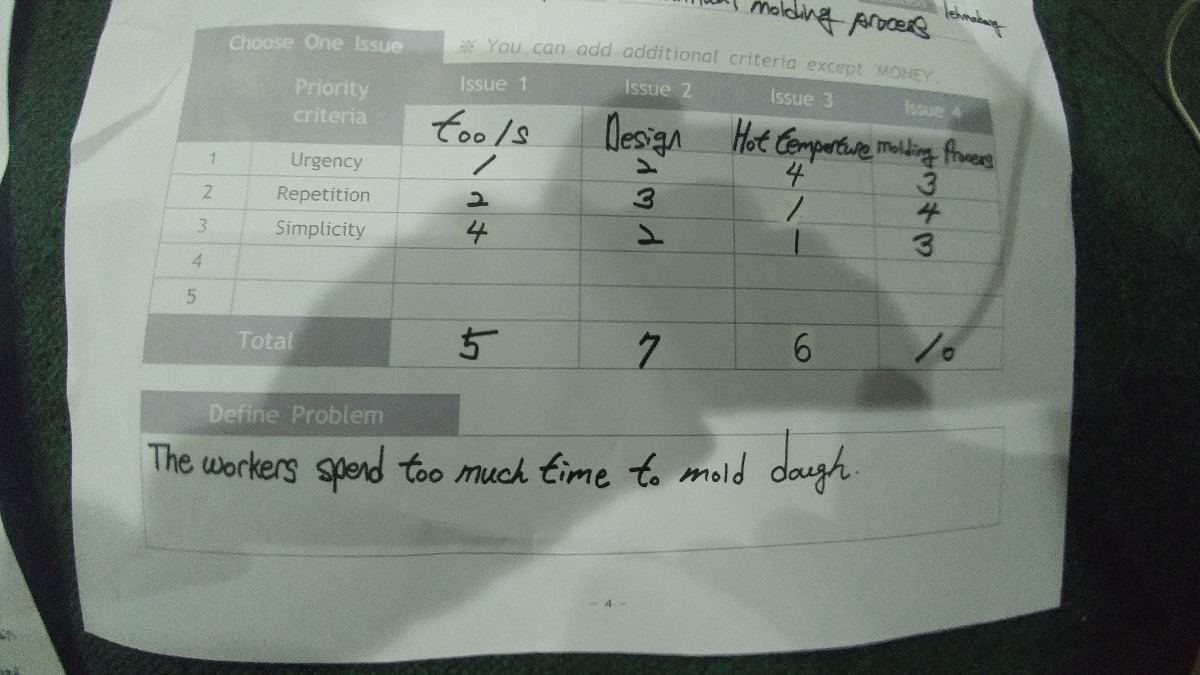 molding process
Choose One Issue
※ You can add additional criteria except MONEY.
Priority criteria Issue 1 Issue 2 Issue 3 Issue 4
too/s Design Hot temperture molding Process
1 Urgency 1 2 4 3
2 Repetition 2 3 1 4
3 Simplicity 4 2 1 3
4
5
Total 5 7 6 10
Define Problem
The workers spend too much time to mold dough.
- 4 -